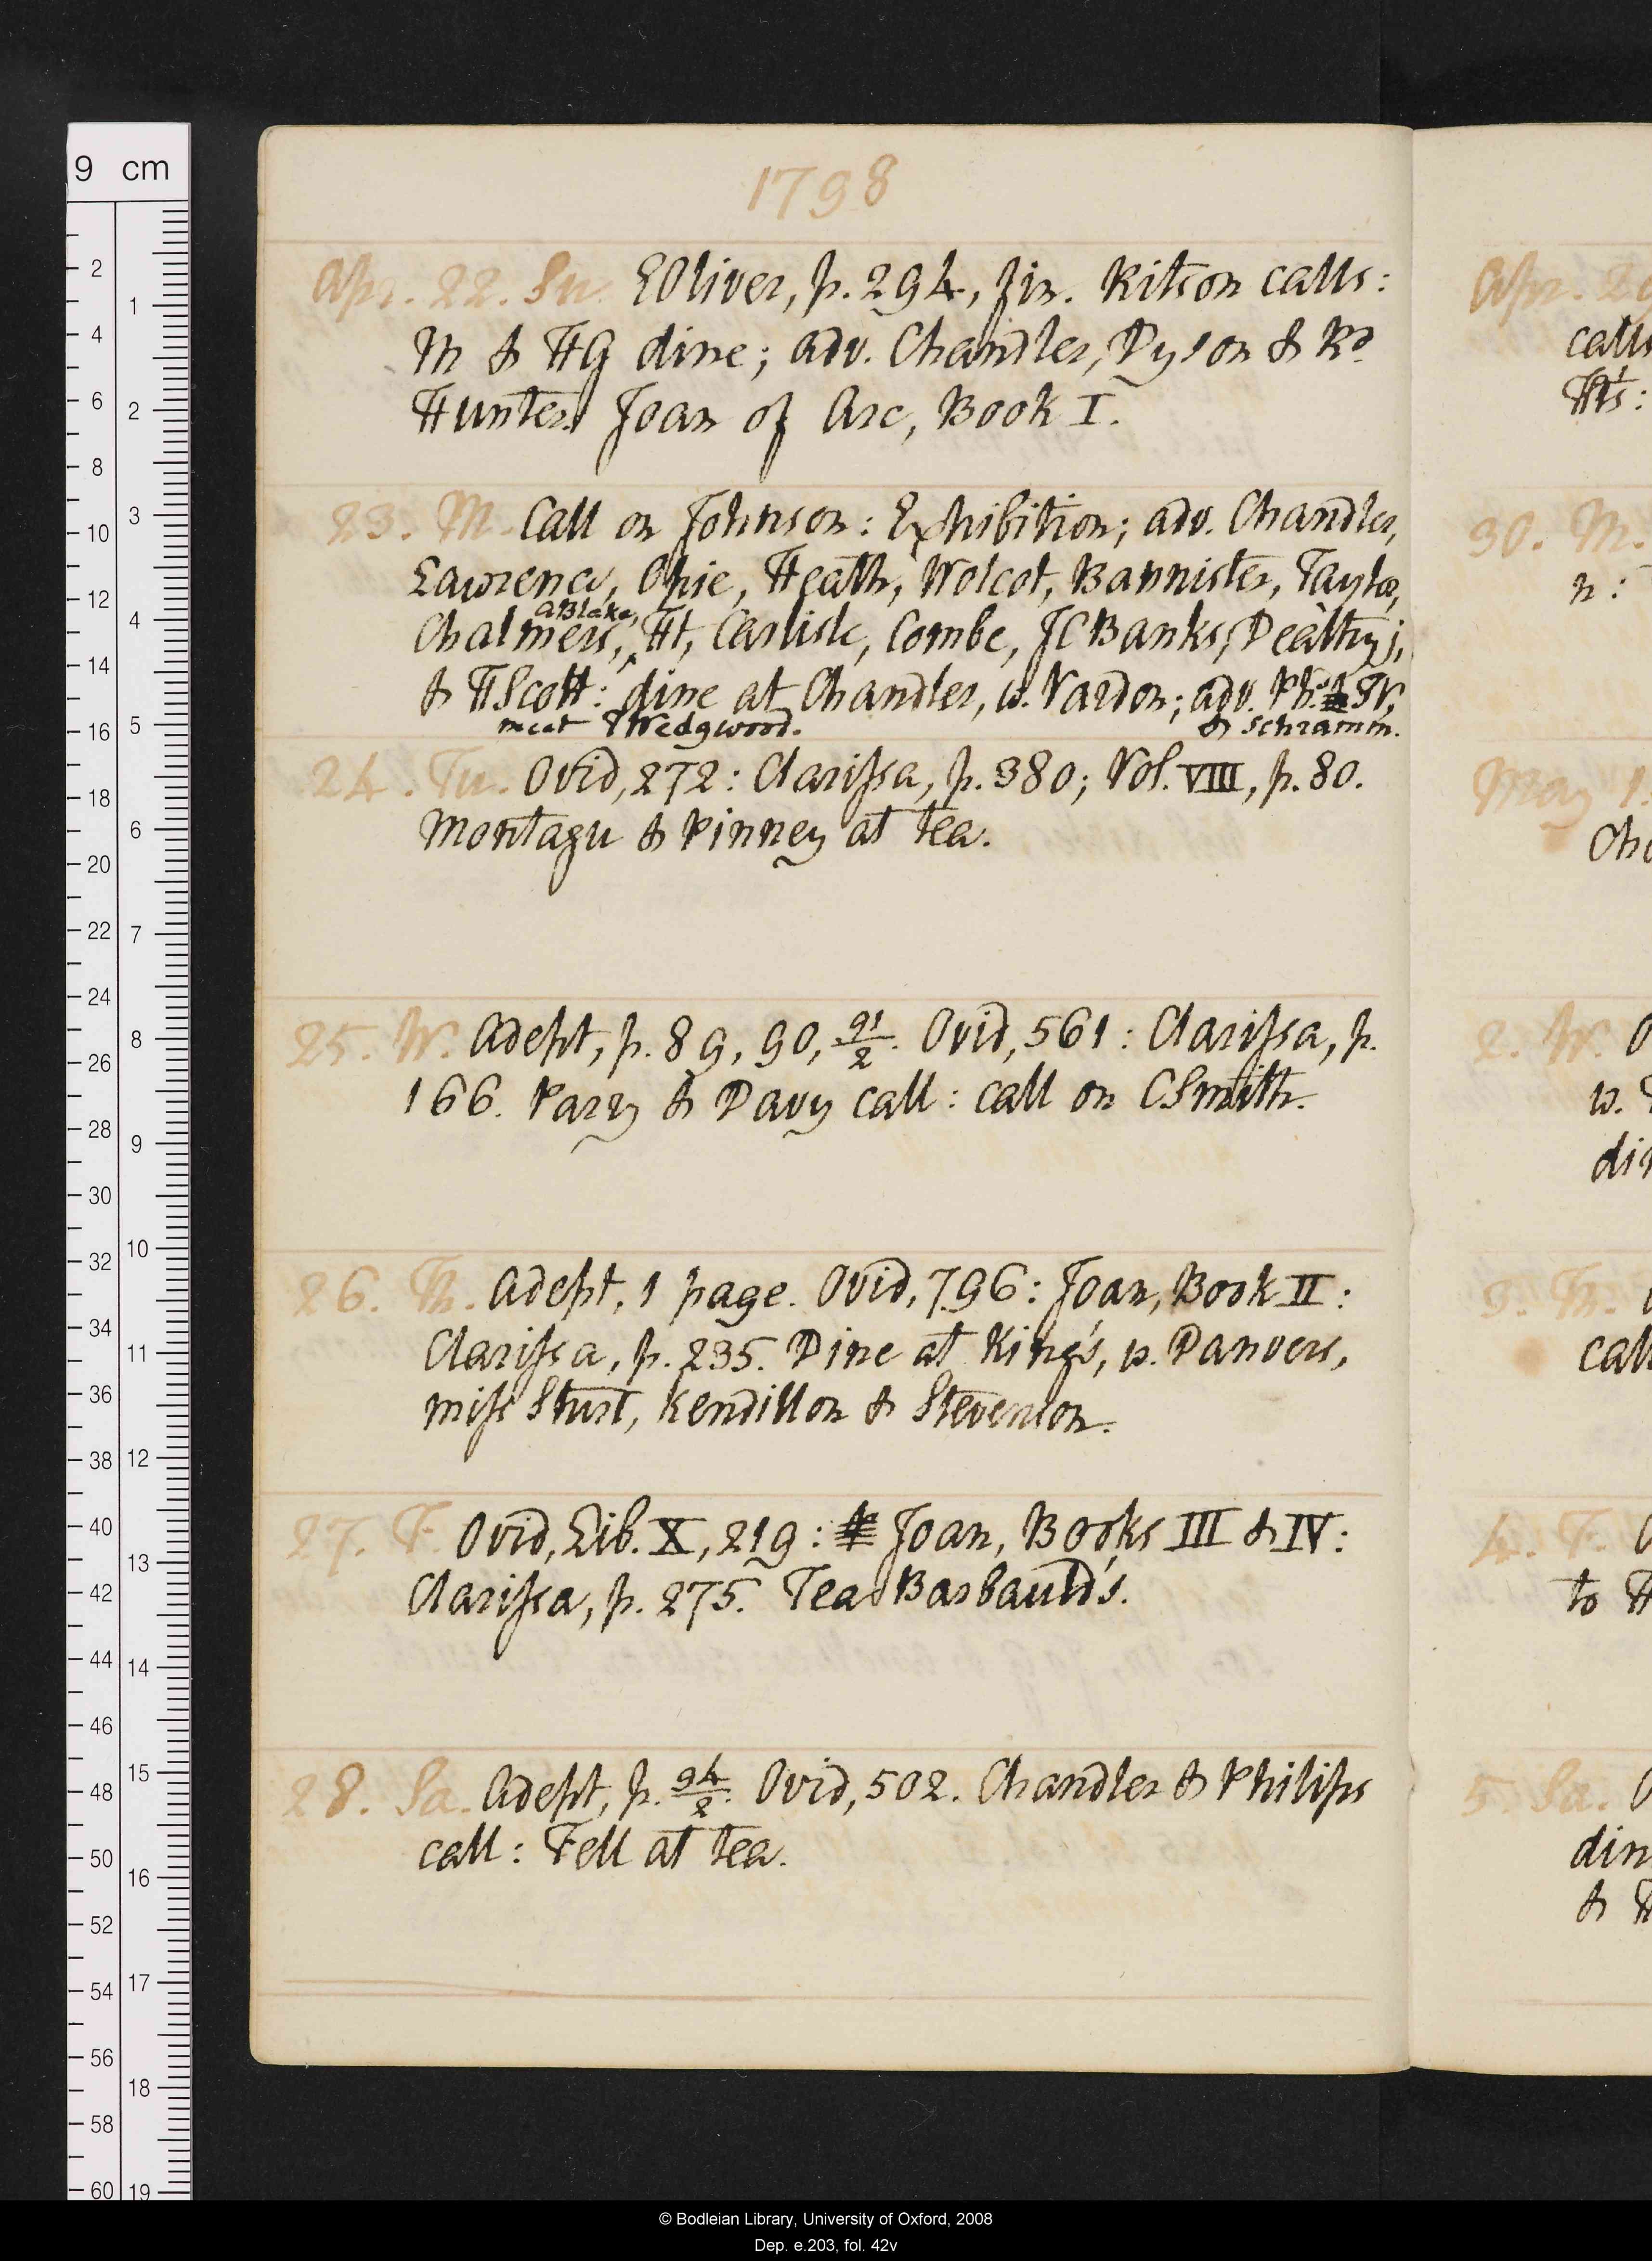 9 cm
1798
Apr. 22. Su. EOliver, p. 294, fin. Ritson calls:
M & HG dine; adv. Chandler, Dyson & Rd
Hunter. Joan of Arc, Book I.
23. M. Call on Johnson: Exhibition; adv. Chandler,
Lawrence, Opie, Heath, Wolcot, Bannister, Taylor,
aBlake,
Chalmers, Ht, Carlisle, Combe, JCBanks, Dealtry j,
& HScott: dine at Chandler, w. Vardon; adv. Ph.
meet TWedgwood. & Schramm.
24. Tu. Ovid, 272: Clarissa, p. 380; Vol. VIII, p. 80.
Montagu & Pinney at tea.
25. W. Adept, p. 89, 90, 91/2. Ovid, 561: Clarissa, p.
166. Parry & Davy call: call on CSmith.
26. Th. Adept, 1 page. Ovid, 796: Joan, Book II:
Clarissa, p. 235. Dine at King's, w. Danvers,
miss Sturt, Kendillon & Stevenson.
27. F. Ovid, Lib. X, 219: Joan, Books III & IV:
Clarissa, p. 275. Tea Barbauld's.
28. Sa. Adept, p. 94/2. Ovid, 502. Chandler & Philips
call: Fell at tea.
Apr. 2
calls
Ht's:
30. M.
n:
May 1.
2. W. O
w.
din
3. Th.
call
4. F. O
to H
5. Sa. O
din
& H
© Bodleian Library, University of Oxford, 2008
Dep. e.203, fol. 42v